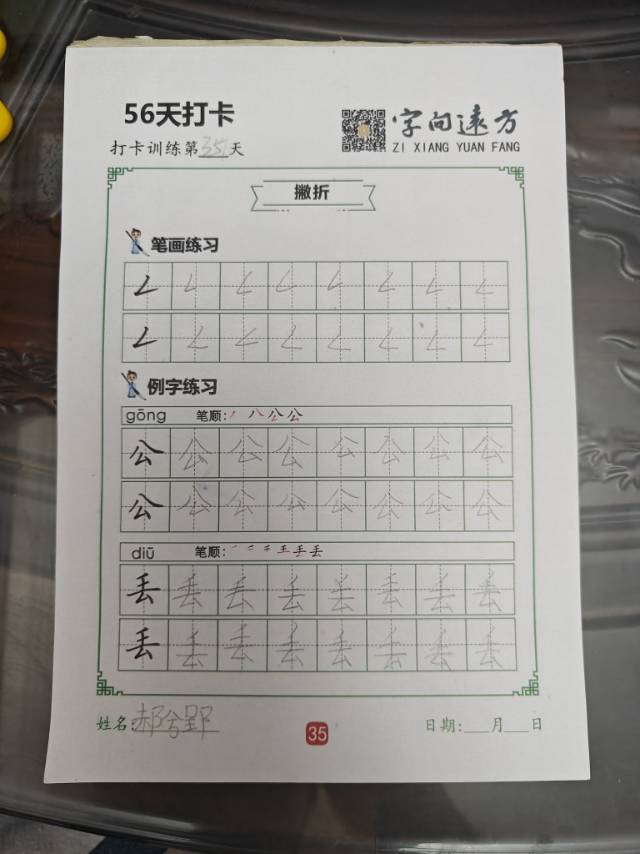 56天打卡
字向远方
ZI XIANG YUAN FANG
打卡训练第35天
撇折
笔画练习
例字练习
gōng 笔顺:
公 公 公 公 公 公 公 公
公 公 公 公 公 公 公 公
diū 笔顺:
丢 丢 丢 丢 丢 丢 丢 丢
丢 丢 丢 丢 丢 丢 丢 丢
姓名:郝兮
35
日期:___月___日